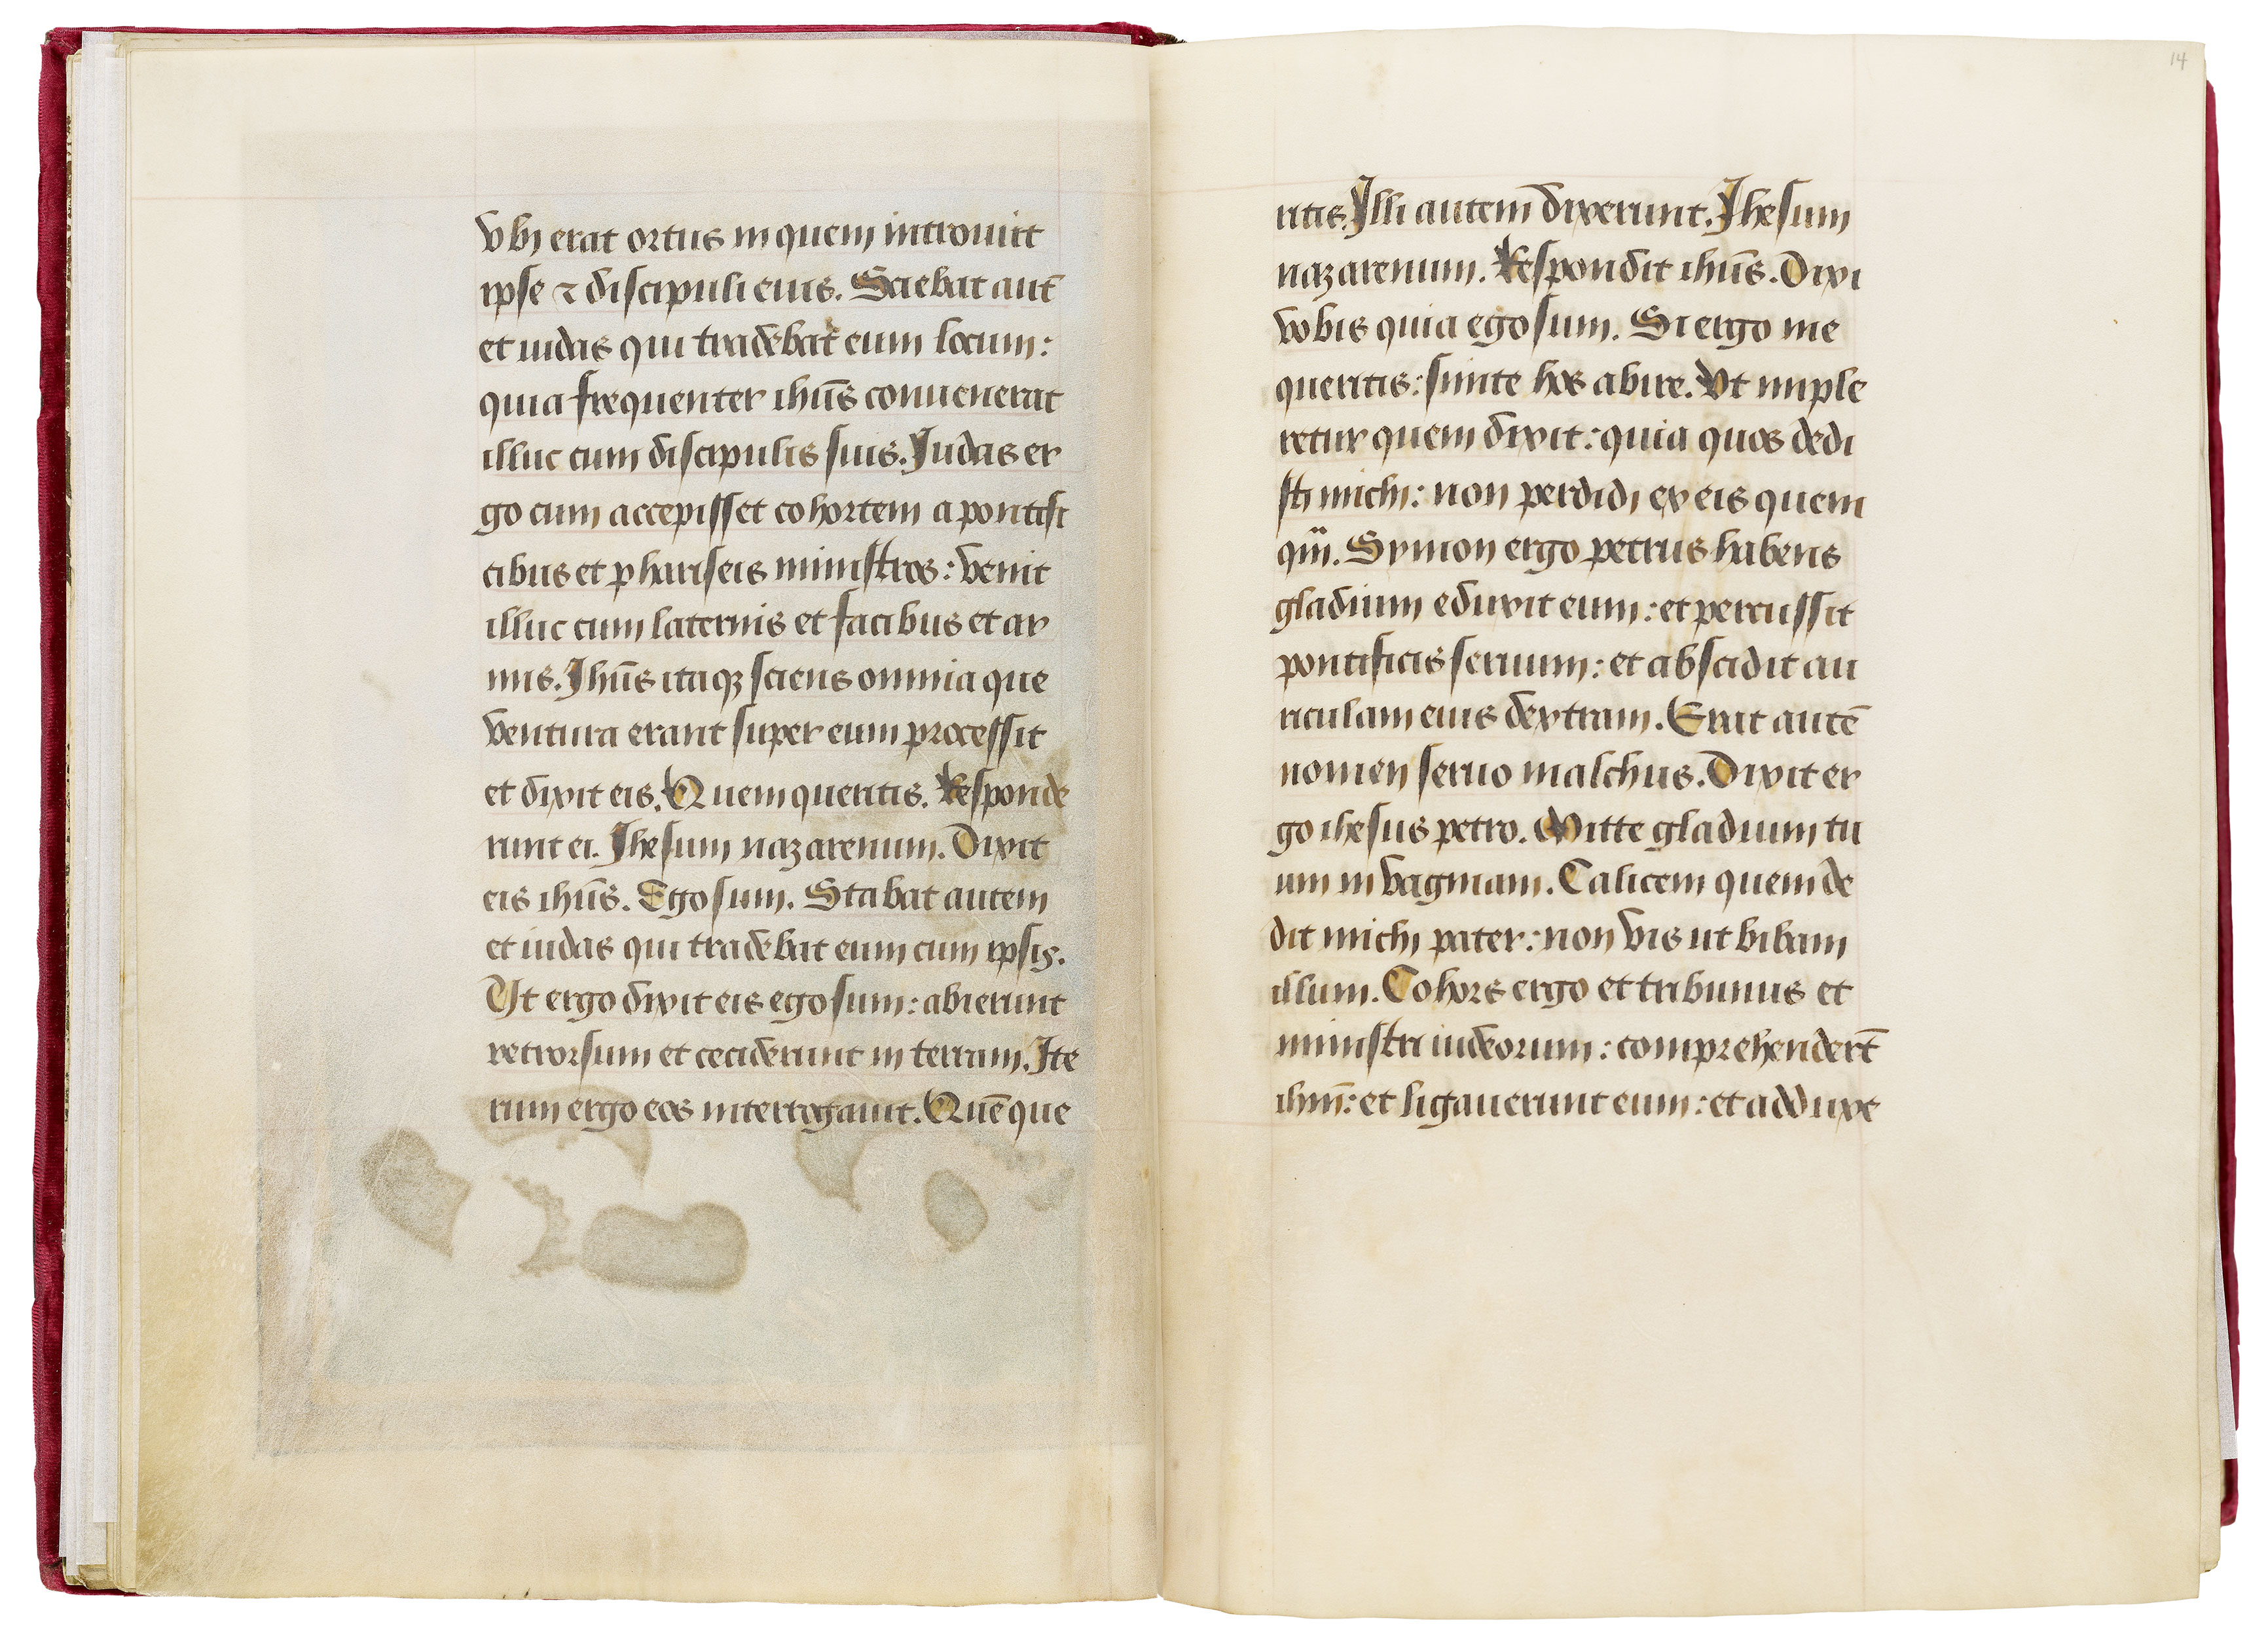 vbi erat ortus in quem introiuit
ipse ⁊ discipuli eius. Sciebat aut̄
et iudas qui tradebat eum locum:
quia frequenter ihūs conuenerat
illuc cum discipulis suis. Judas er
go cum accepisset cohortem a pontifi
cibus et phariseis ministros: venit
illuc cum laternis et facibus et ar
mis. Jhūs itaqꝫ sciens omnia que
ventura erant super eum processit
et dixit eis. Quem queritis. Responde
runt ei. Jhesum nazarenum. Dixit
eis ihūs. Ego sum. Stabat autem
et iudas qui tradebat eum cum ipsis.
Ut ergo dixit eis ego sum: abierunt
retrorsum et ceciderunt in terram. Ite
rum ergo eos interrogauit. Quē que
14
ritis. Illi autem dixerunt. Jhesum
nazarenum. Respondit ihūs. Dixi
vobis quia ego sum. Si ergo me
queritis: sinite hos abire. Vt imple
retur quem dixit: quia quos dedi
sti michi: non perdidi ex eis quem
qm̄. Symon ergo petrus habens
gladium eduxit eum: et percussit
pontificis seruum: et abscidit au
riculam eius dextram. Erat autē
nomen seruo malchus. Dixit er
go ihesus petro. Mitte gladium tu
um in vaginam. Calicem quem de
dit michi pater: non vis ut bibam
illum. Cohors ergo et tribunus et
ministri iudeorum: comprehendert̄
ihm̄: et ligauerunt eum: et adduxe